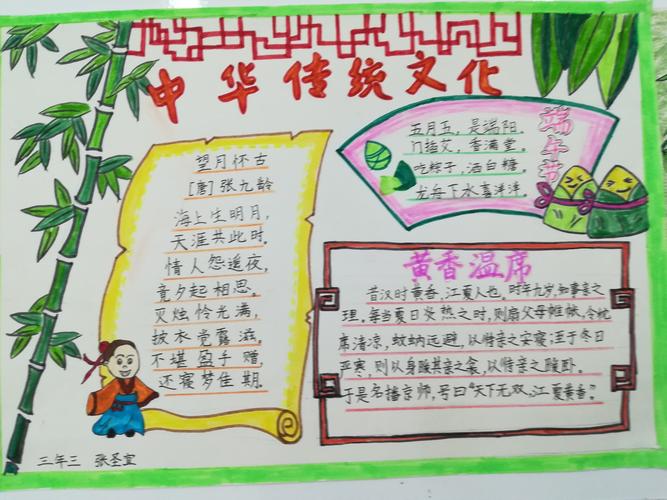 中华传统文化
望月怀古
[唐]张九龄
海上生明月，
天涯共此时。
情人怨遥夜，
竟夕起相思。
灭烛怜光满，
披衣觉露滋。
不堪盈手赠，
还寝梦佳期。
端午节
五月五，是端阳。
门插艾，香满堂。
吃粽子，洒白糖。
龙舟下水喜洋洋。
黄香温席
昔汉时黄香，江夏人也。时年九岁，知事亲之
理。每当夏日炎热之时，则扇父母帷帐，令枕
席清凉，蚊蚋远避，以待亲之安寝；至于冬日
严寒，则以身暖其亲之衾，以待亲之暖卧。
于是名播京师，号曰“天下无双，江夏黄香”。
三年三 张圣宜